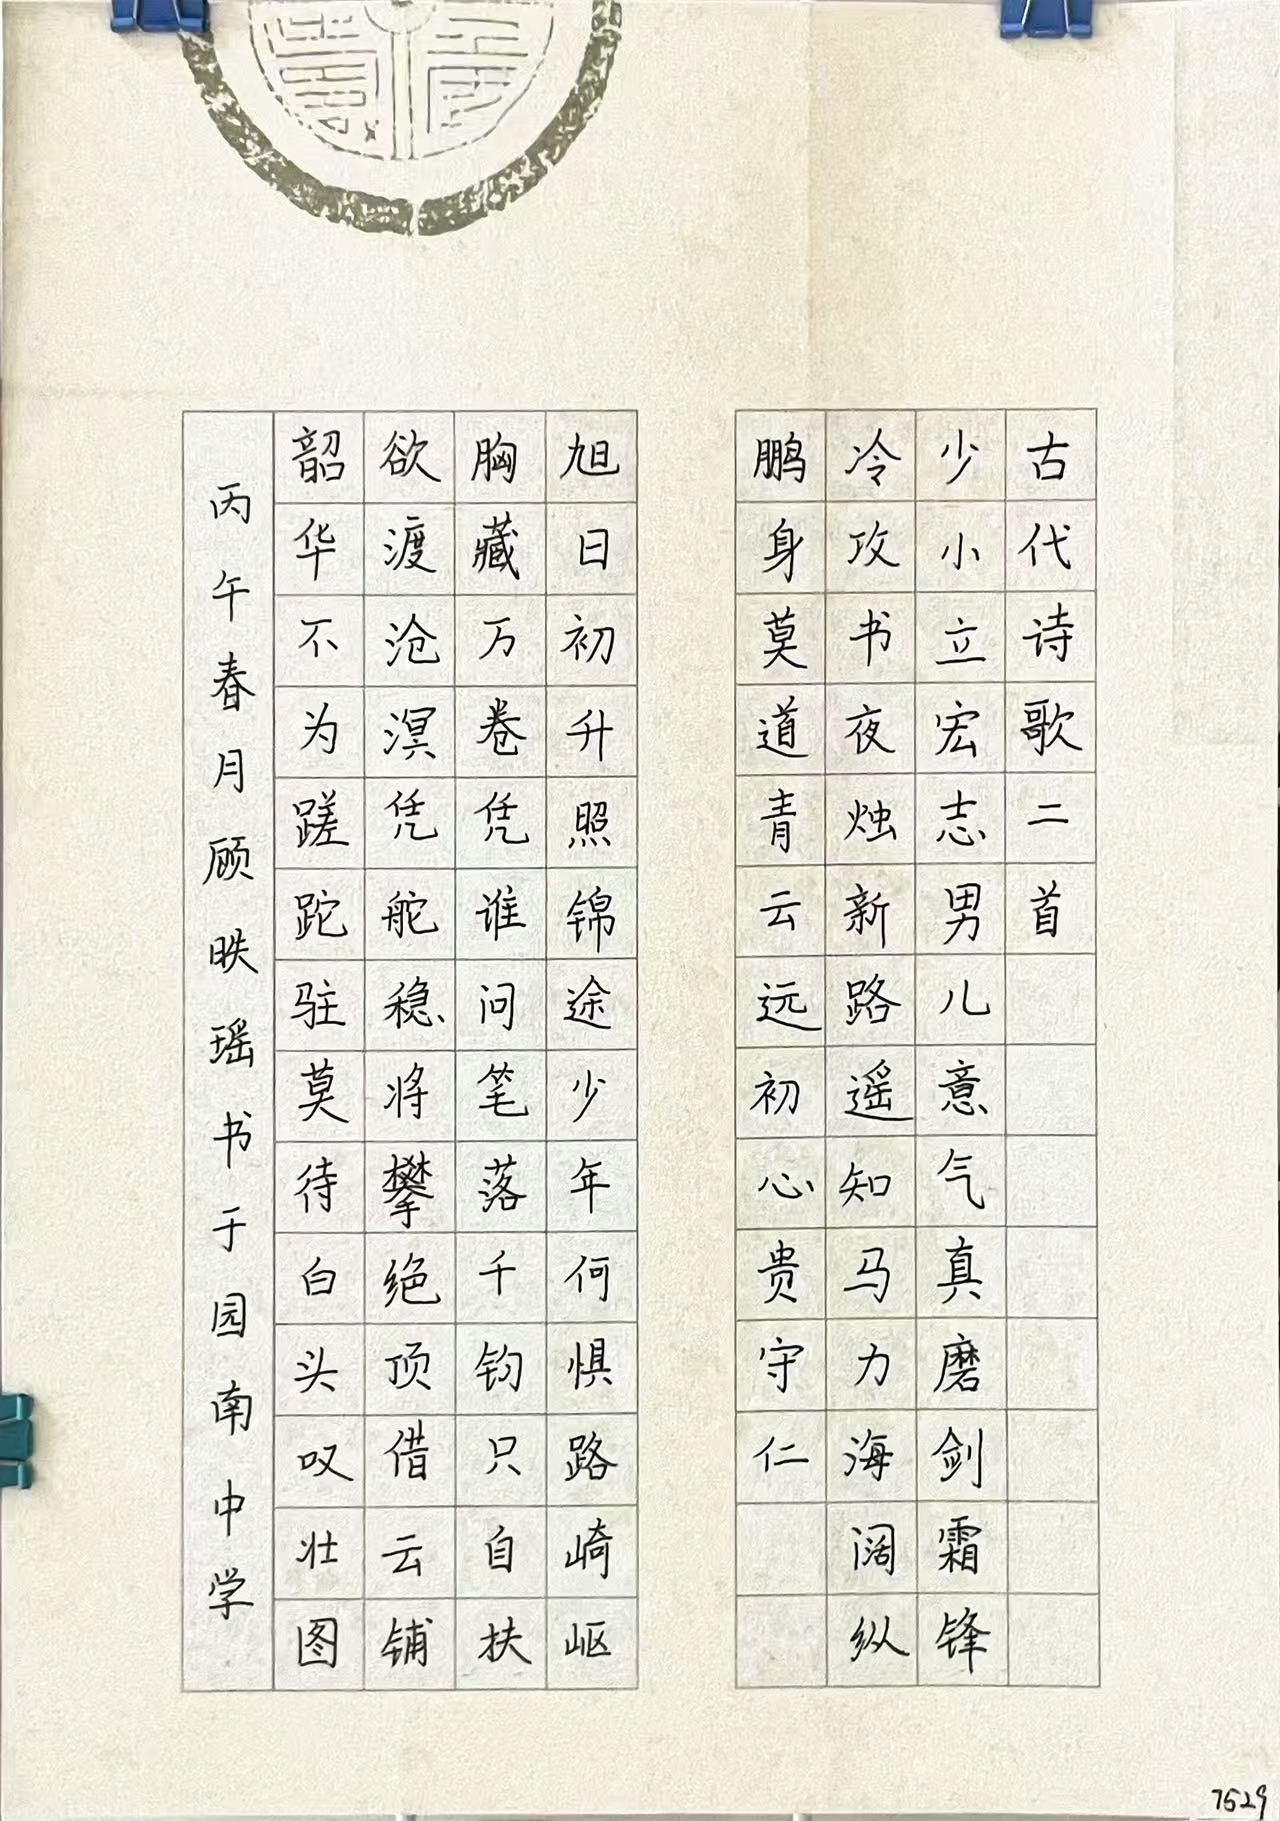 古代诗歌二首
少小立宏志男儿意气真磨剑霜锋
冷攻书夜烛新路遥知马力海阔纵
鹏身莫道青云远初心贵守仁
旭日初升照锦途少年何惧路崎岖
胸藏万卷凭谁问笔落千钧只自扶
欲渡沧溟凭舵稳将攀绝顶借云铺
韶华不为蹉跎驻莫待白头叹壮图
丙午春月顾昳瑶书于园南中学
7529